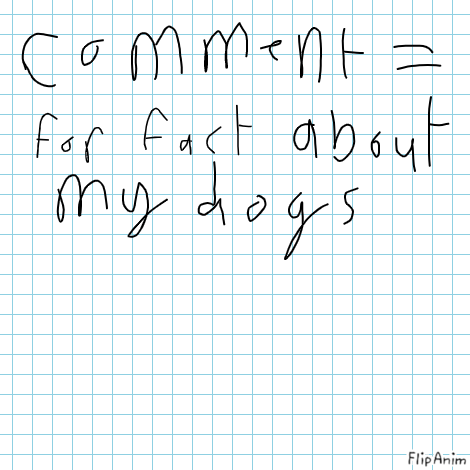 Comment =
for fact about
my dogs
FlipAnim